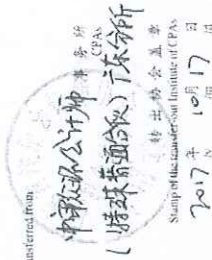 nsferred from
中审众环会计师 事务所
CPAs
(特殊普通合伙)广东分所
转出协会盖章
Stamp of the transfer-out Institute of CPAs
2017 年 10月 17 日
/y /m /d